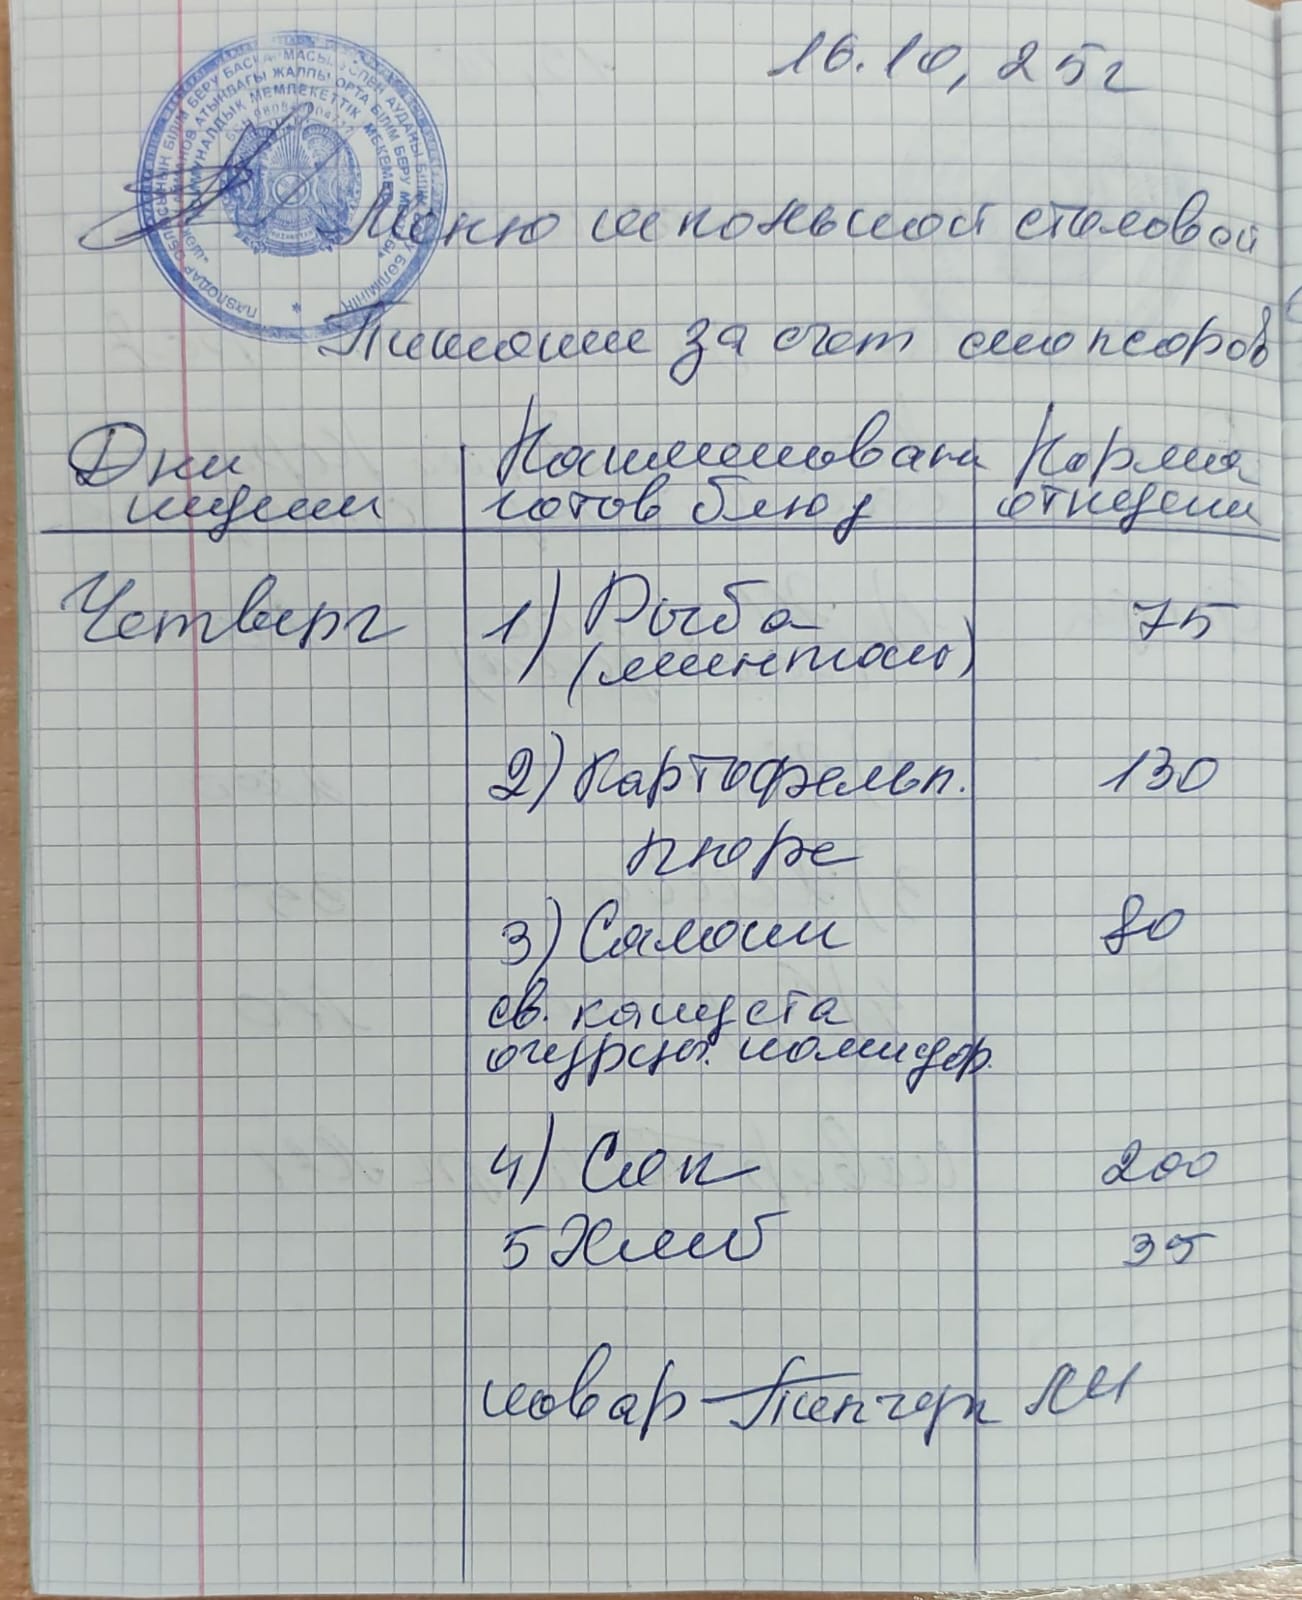 16.10, 25г
Меню школьной столовой
Питание за счет спонсоров
Дни недели
Наименован готов блюд
Норма отпедени
Четверг
1) Рыба 75
(минтай)
2) Картофельн. 130
пюре
3) Салаты 80
св. капуста
огурцы. помидор.
4) Сок 200
5 Хлеб 35
повар
ПАВЛОДАР ОБЛЫСЫНЫҢ БІЛІМ БЕРУ БАСҚАРМАСЫ
ЖАЛПЫ ОРТА БІЛІМ БЕРУ
КОММУНАЛДЫҚ МЕМЛЕКЕТТІК МЕКЕМЕСІ